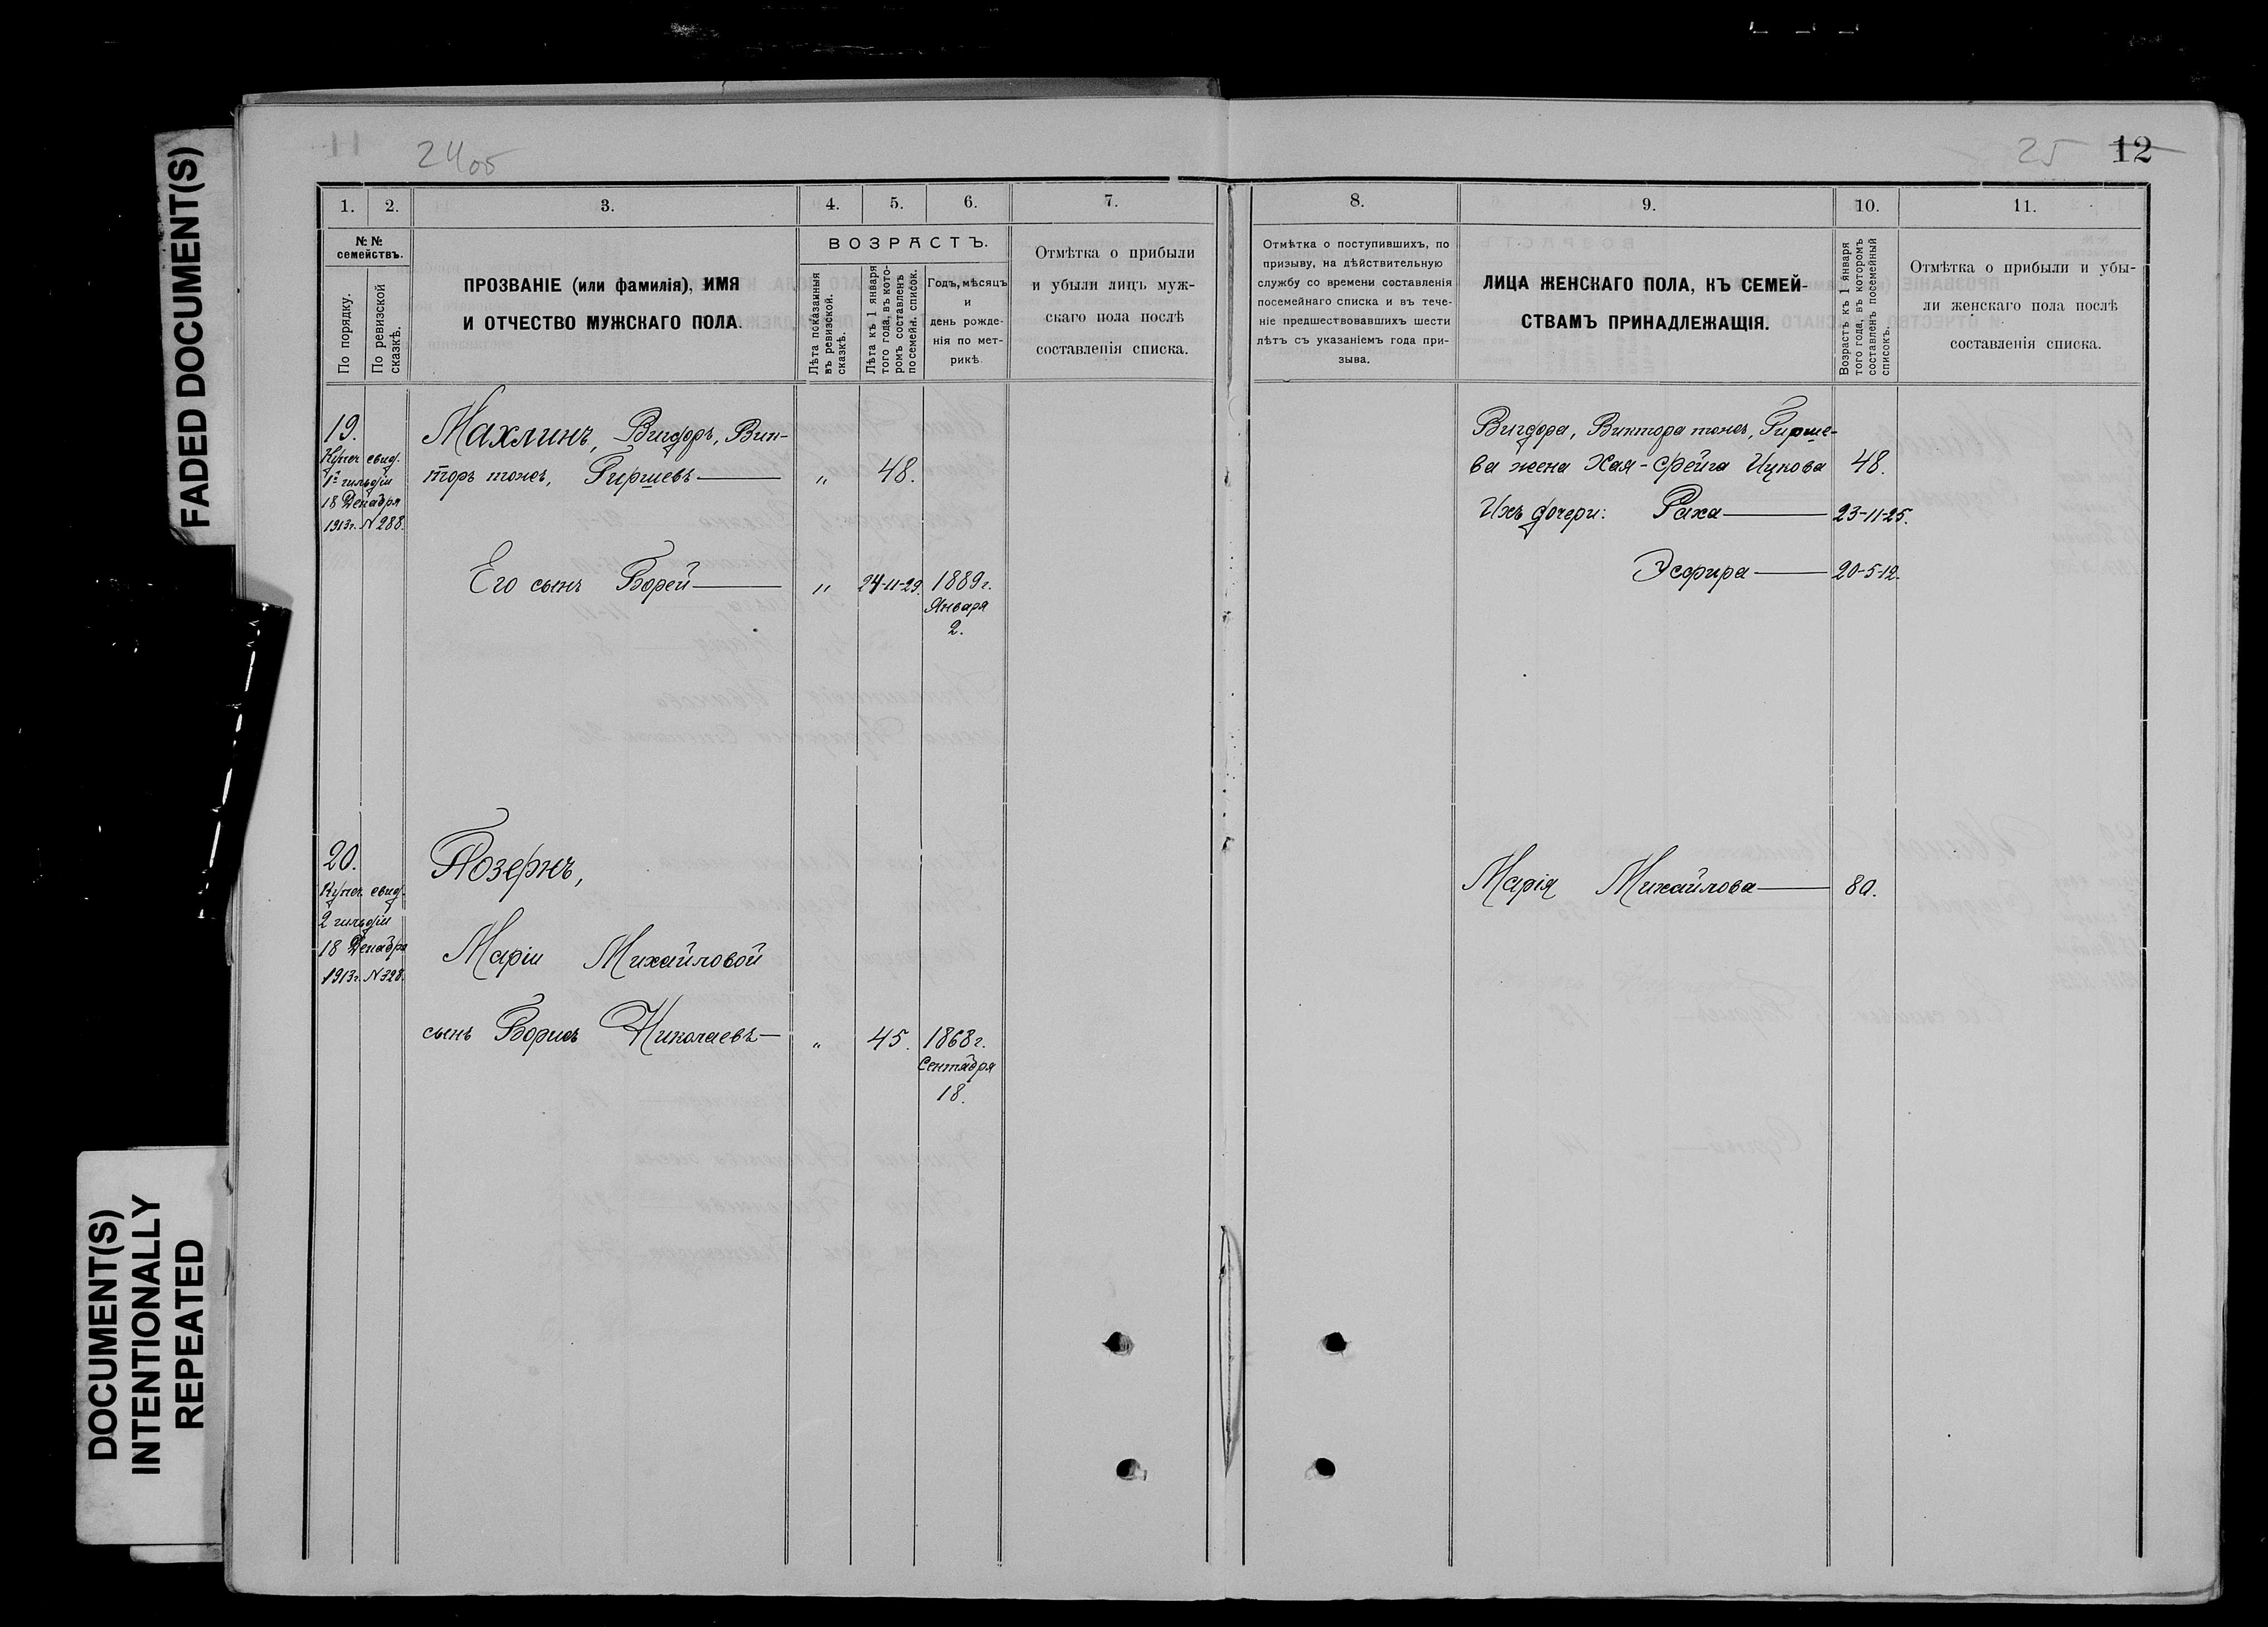 FADED DOCUMENT(S)
DOCUMENT(S)
INTENTIONALLY
REPEATED
24об
25 12
1. 2. 3. 4. 5. 6. 7.
№ №
семействъ.
По порядку.
По ревизской
сказкѣ.
ПРОЗВАНІЕ (или фамилія), ИМЯ
И ОТЧЕСТВО МУЖСКАГО ПОЛА.
ВОЗРАСТЪ.
Лѣта показанныя
въ ревизской.
сказкѣ.
Лѣта къ 1 января
того года, въ кото-
ромъ составленъ
посемейн. список.
Годъ, мѣсяцъ
и
день рожде-
нія по мет-
рикѣ.
Отмѣтка о прибыли
и убыли лицъ муж-
скаго пола послѣ
составленія списка.
19.
Купеч. свид.
1й гильдіи
18 Декабря
1913г. N 288.
Махлинъ, Вигдоръ, Вик-
торъ тожъ, Гиршевъ — „ 48.
Его сынъ Борей — „ 24-11-29. 1889г.
Января
2.
20.
Купеч. свид.
2 гильдіи
18 Декабря
1913г. N 328.
Позернъ,
Маріи Михайловой
сынъ Борисъ Николаевъ — „ 45. 1868г.
Сентября
18.
8. 9. 10. 11.
Отмѣтка о поступившихъ, по
призыву, на дѣйствительную
службу со времени составленія
посемейнаго списка и въ тече-
ніе предшествовавшихъ шести
лѣтъ съ указаніемъ года при-
зыва.
ЛИЦА ЖЕНСКАГО ПОЛА, КЪ СЕМЕЙ-
СТВАМЪ ПРИНАДЛЕЖАЩІЯ.
Возрастъ къ 1 января
того года, въ которомъ
составленъ посемейный
списокъ.
Отмѣтка о прибыли и убы-
ли женскаго пола послѣ
составленія списка.
Вигдора, Виктора тожъ, Гирше-
ва жена Хая-Фейга Ицкова 48.
Ихъ дочери: Раха — 23-11-25.
Эсфира — 20-5-12.
Марія Михайлова — 80.